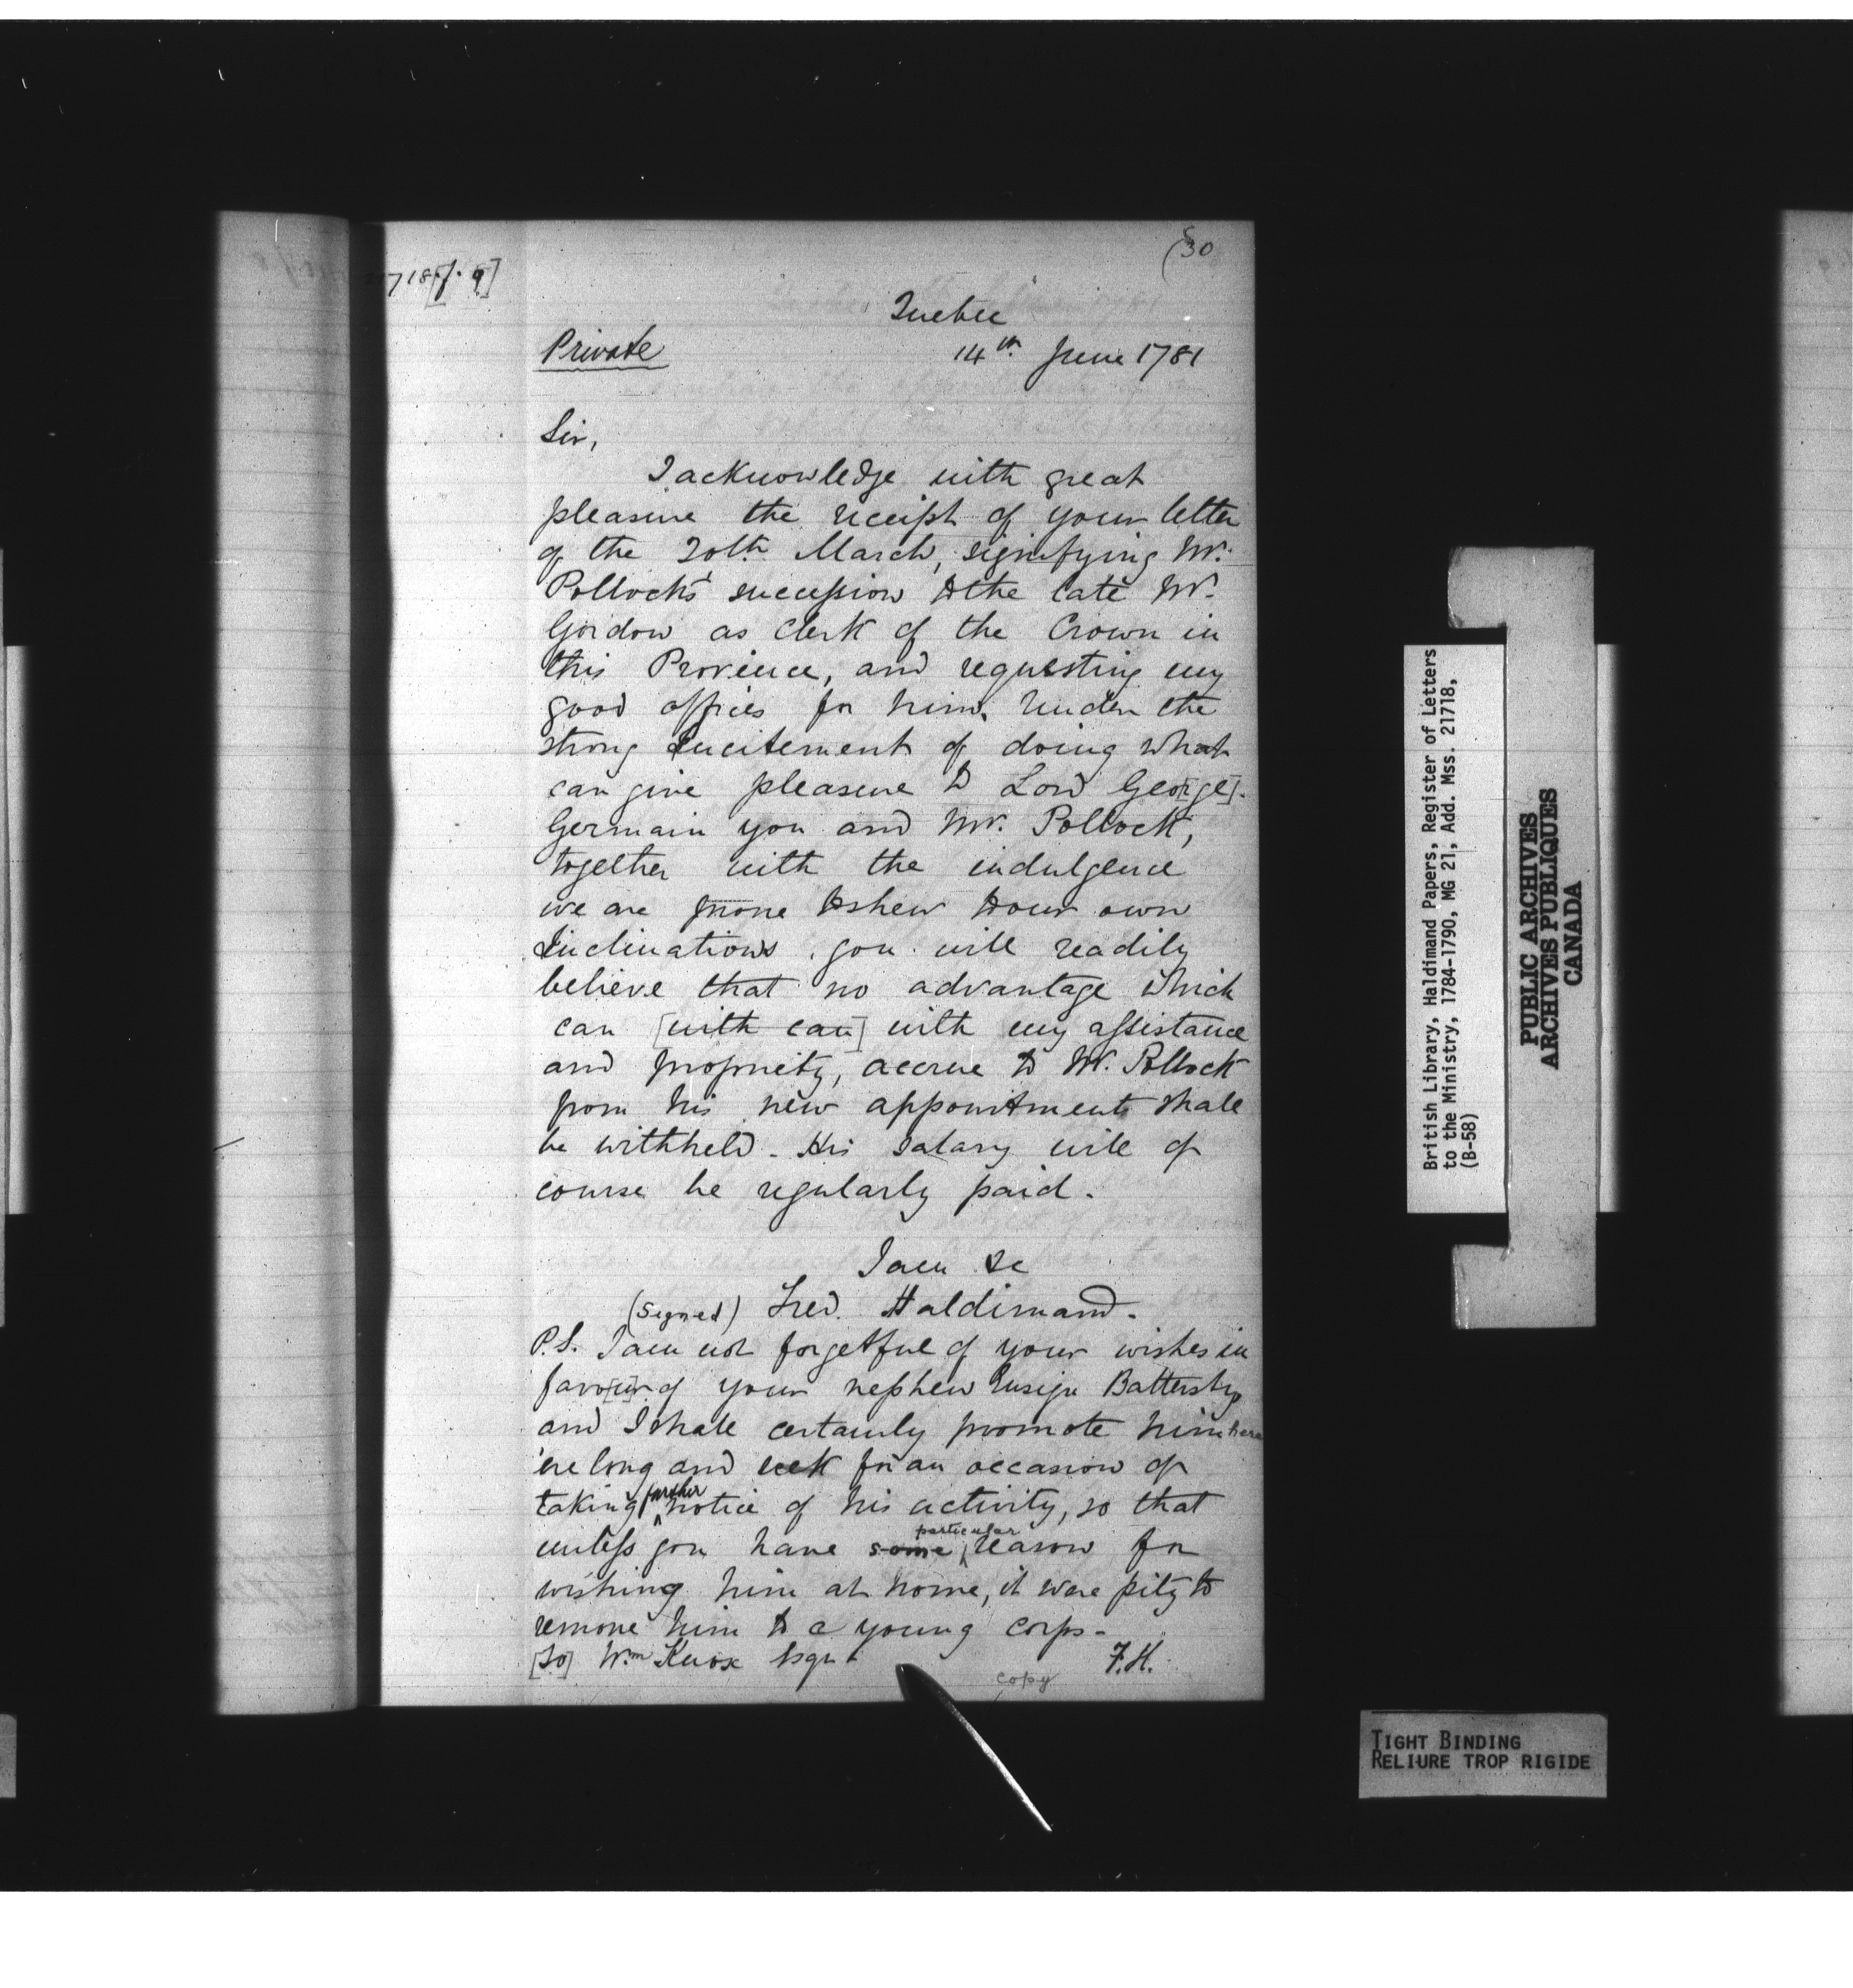 (30
21718 [f. 9]
Quebec
Private 14th June 1781
Sir,
I acknowledge with great
pleasure the receipt of your letter
of the 20th March, signifying Mr.
Pollock's succession to the late Mr.
Gordon as Clerk of the Crown in
this Province, and requesting my
good offices for him. Under the
strong Incitement of doing what
can give pleasure to Lord Geo[rge].
Germain you and Mr. Pollock,
together with the indulgence
we are prone to shew to our own
Inclinations, you will readily
believe that no advantage which
can [with can] with my assistance
and propriety, accrue to Mr. Pollock
from his new appointment shall
be withheld - His salary will of
course be regularly paid.
I am &c
(signed) Fred. Haldimand.
P.S. I am not forgetful of your wishes in
favo[u]r of your nephew Ensign Battersby
and I shall certainly promote him here
'ere long and seek for an occasion of
taking further notice of his activity, so that
unless you have some particular reason for
wishing him at home, it were pity to
remove him to a young corps -
[To] Wm Knox Esqr F.H.
copy
British Library, Haldimand Papers, Register of Letters
to the Ministry, 1784-1790, MG 21, Add. Mss. 21718,
(B-58)
PUBLIC ARCHIVES
ARCHIVES PUBLIQUES
CANADA
TIGHT BINDING
RELIURE TROP RIGIDE